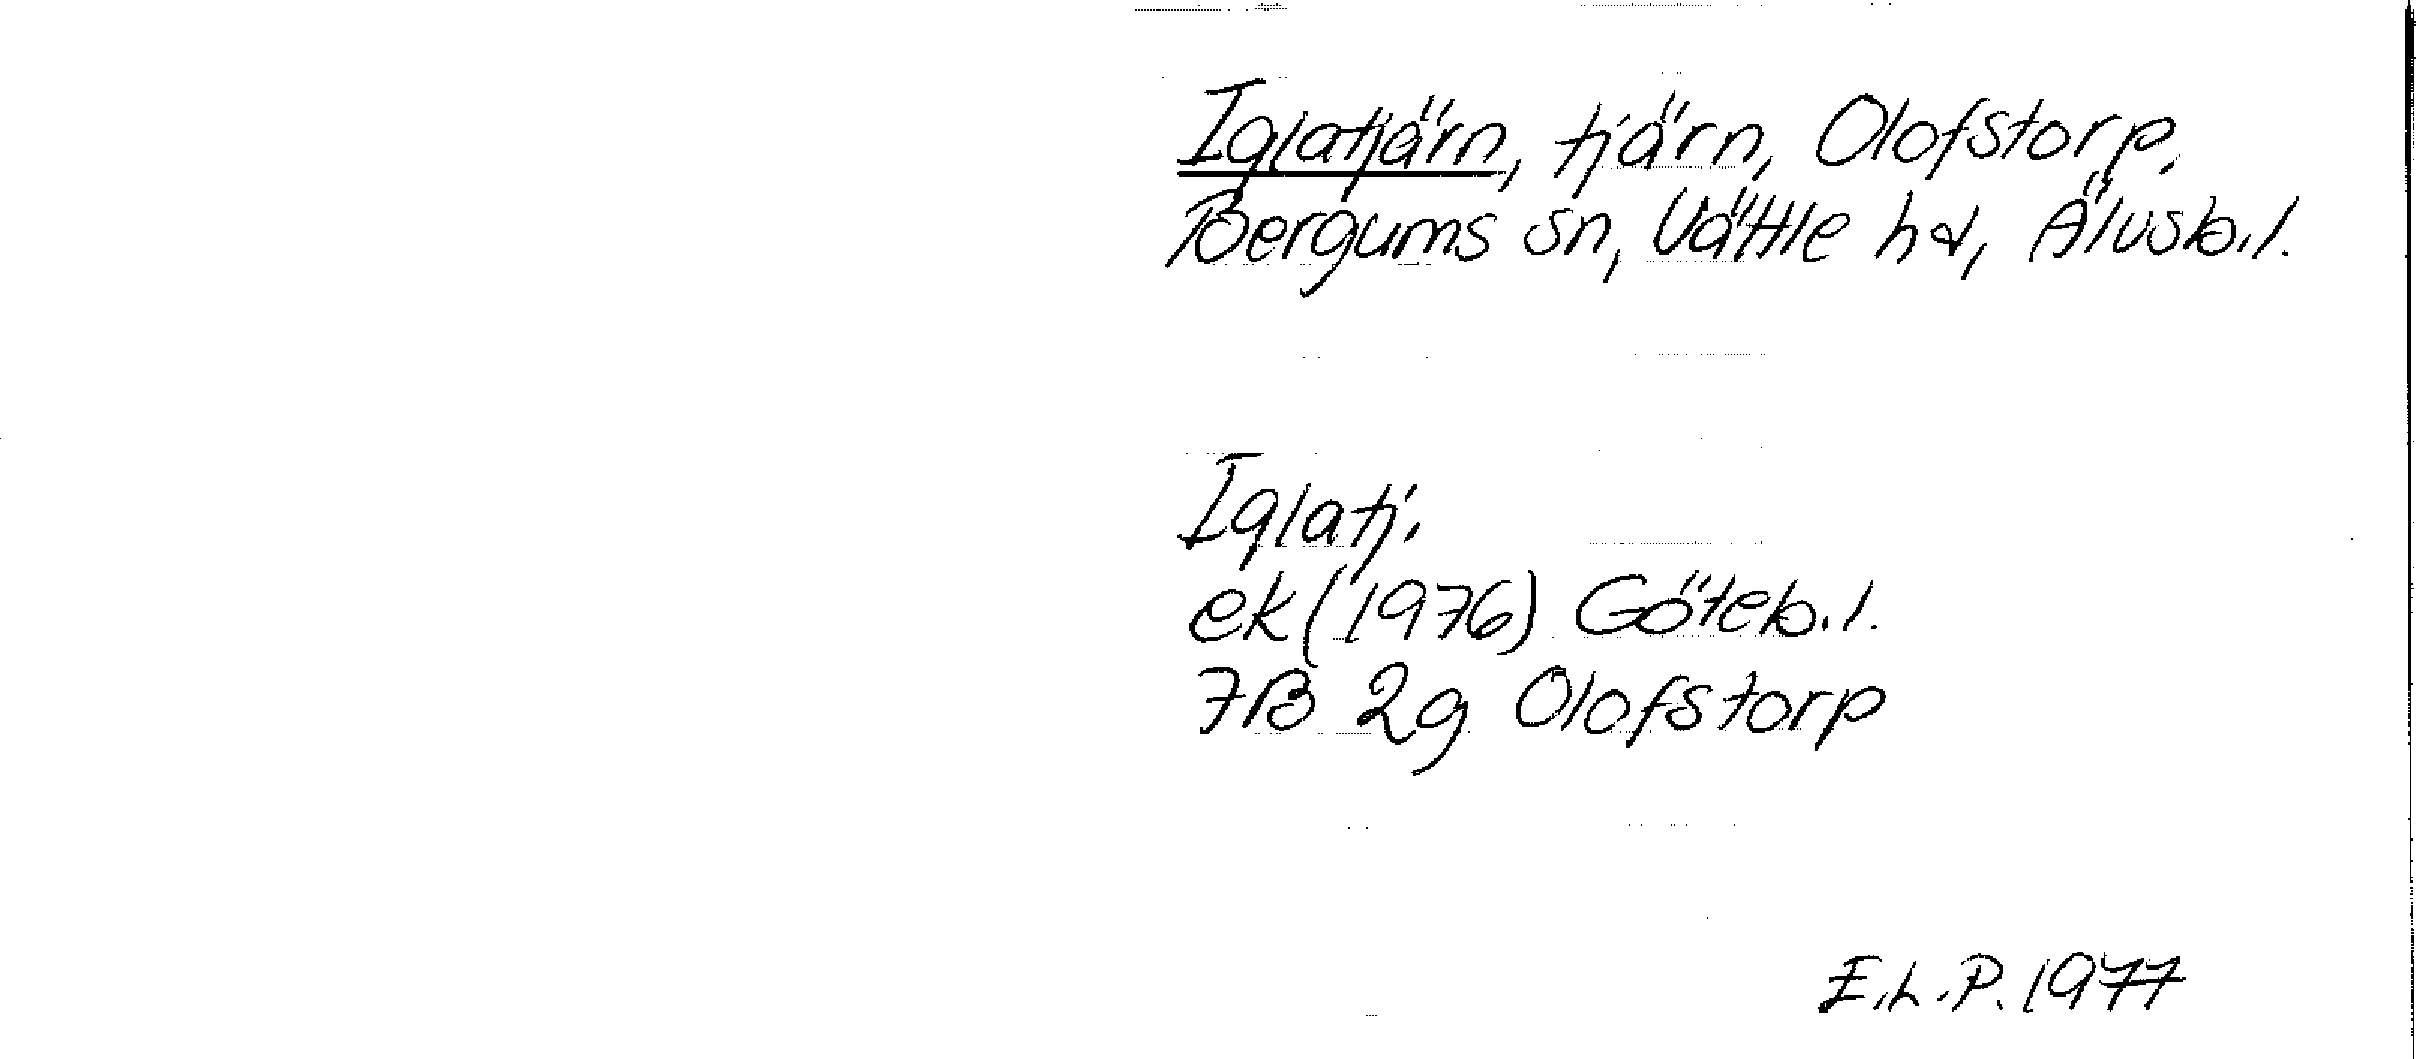 Iglatjärn, tjärn, Olofstorp,
Bergums sn, Vättle hd, Älvsb.l.
Iglatj.
ek (1976) Göteb.l.
7B 2g Olofstorp
E.L.P. 1977